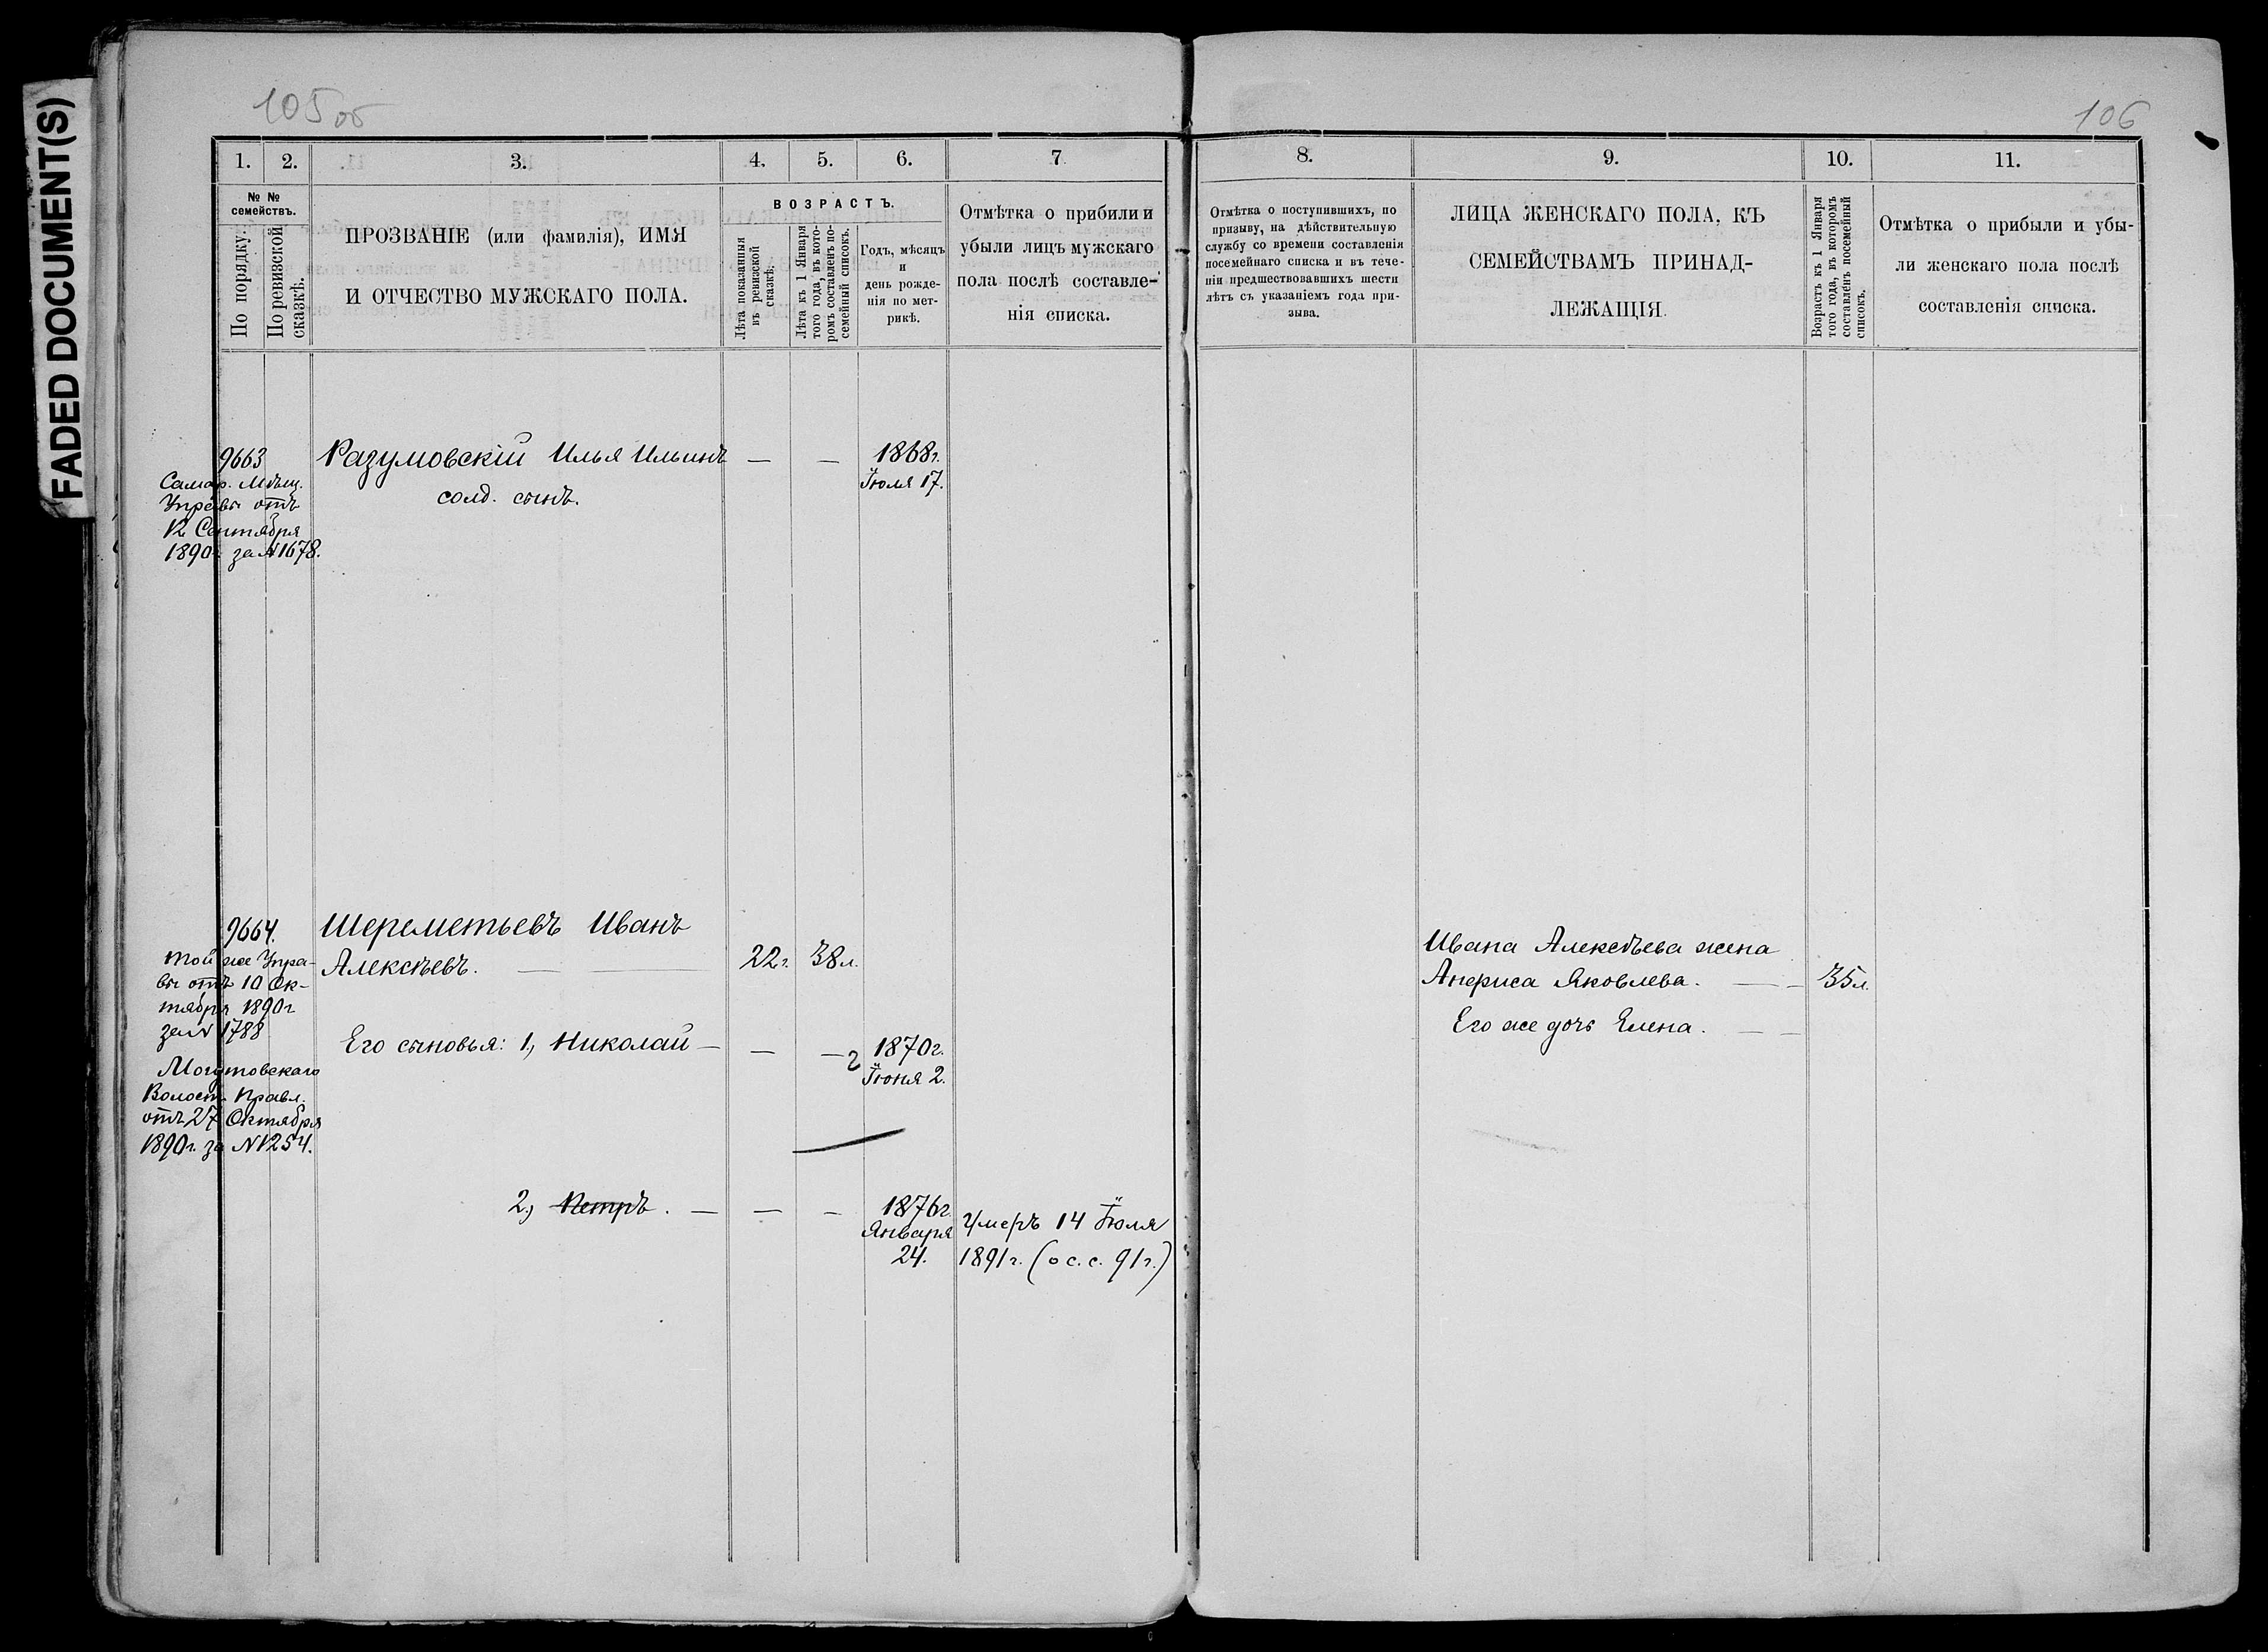 FADED DOCUMENT(S)
105об
106
1.
2.
3.
4.
5.
6.
7
8.
9.
10.
11.
№ №
семействъ.
По порядку.
По ревизской
сказкѣ.
ПРОЗВАНІЕ (или фамилія), ИМЯ
И ОТЧЕСТВО МУЖСКАГО ПОЛА.
ВОЗРАСТЪ.
Лѣта показанныя
въ ревизской
сказкѣ.
Лѣта къ 1 Января
того года, въ кото-
ромъ составленъ по-
семейный списокъ.
Годъ, мѣсяцъ
и
день рожде-
нія по мет-
рикѣ.
Отмѣтка о прибыли и
убыли лицъ мужскаго
пола послѣ составле-
нія списка.
Отмѣтка о поступившихъ, по
призыву, на дѣйствительную
службу со времени составленія
посемейнаго списка и въ тече-
ніи предшествовавшихъ шести
лѣтъ съ указаніемъ года при-
зыва.
ЛИЦА ЖЕНСКАГО ПОЛА, КЪ
СЕМЕЙСТВАМЪ ПРИНАД-
ЛЕЖАЩІЯ.
Возрастъ къ 1 Января
того года, въ которомъ
составленъ посемейный
списокъ.
Отмѣтка о прибыли и убы-
ли женскаго пола послѣ
составленія списка.
9663
Самар. Мѣщ.
Управы отъ
12 Сентября
1890г. за N 1678.
Разумовскій Илья Ильинъ — —
солд. сынъ.
1868г.
Іюля 17.
9664.
той же Упра-
вы отъ 10 Ок-
тября 1890г
за N 1788
Могутовскаго
Волост. Правл.
отъ 27 Октября
1890г. за N 1254.
Шереметьевъ Иванъ
Алексѣевъ. — — 22г. 38л.
Его сыновья: 1, Николай — — —
1870г.
Іюня 2.
2, Петръ. — — —
1876г.
Января
24.
Умеръ 14 Іюля
1891г. (о с. с. 91г.)
Ивана Алексѣева жена
Анфиса Яковлева. — — 35л.
Его же дочь Елена. — —